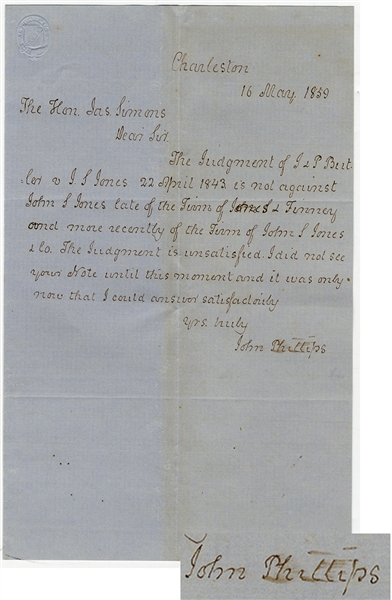 Charleston
16 May. 1859
The Hon. Jas. Simons
Dear Sir
The Judgment of J & P But-
ler v J. S Jones 22 April 1843 is not against
John S Jones late of the Firm of Jones & Finney
and more recently of the Firm of John S Jones
& Co. The Judgment is unsatisfied. I did not see
your Note until this moment and it was only
now that I could answer satisfactorily
Yrs. truly
John Phillips
John Phillips